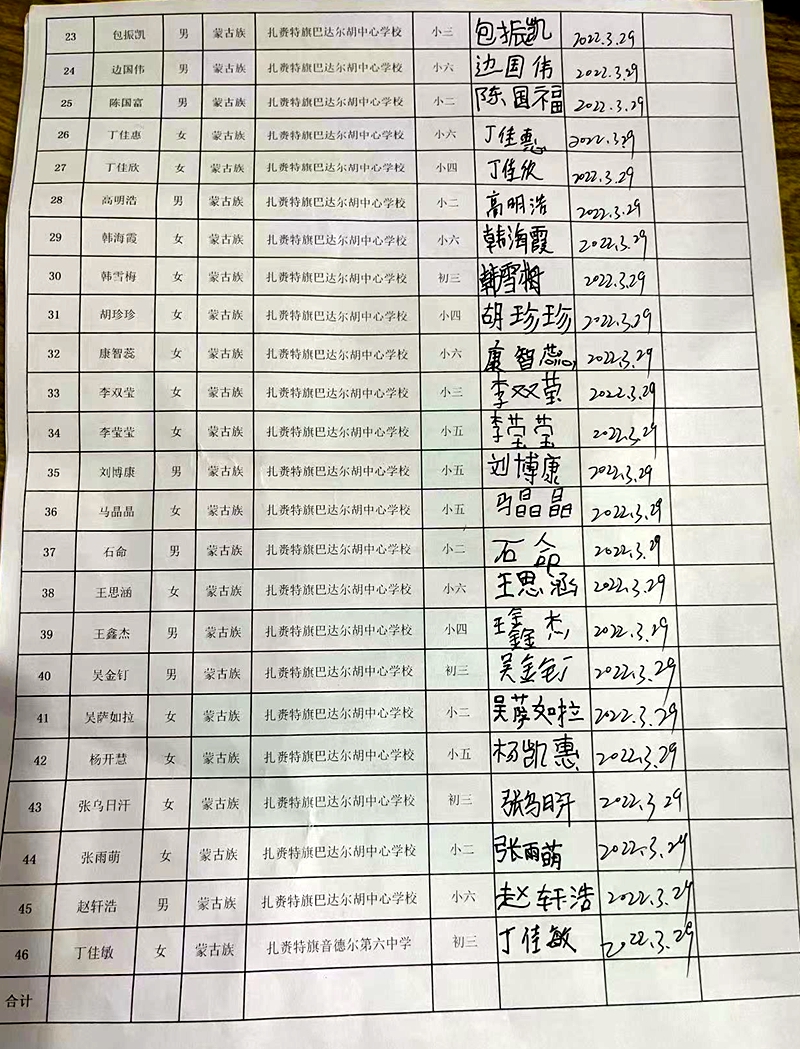 23 包振凯 男 蒙古族 扎赉特旗巴达尔胡中心学校 小三 包振凯 2022.3.29
24 边国伟 男 蒙古族 扎赉特旗巴达尔胡中心学校 小六 边国伟 2022.3.29
25 陈国富 男 蒙古族 扎赉特旗巴达尔胡中心学校 小二 陈国福 2022.3.29
26 丁佳惠 女 蒙古族 扎赉特旗巴达尔胡中心学校 小六 丁佳惠 2022.3.29
27 丁佳欣 女 蒙古族 扎赉特旗巴达尔胡中心学校 小四 丁佳欣 2022.3.29
28 高明浩 男 蒙古族 扎赉特旗巴达尔胡中心学校 小二 高明浩 2022.3.29
29 韩海霞 女 蒙古族 扎赉特旗巴达尔胡中心学校 小六 韩海霞 2022.3.29
30 韩雪梅 女 蒙古族 扎赉特旗巴达尔胡中心学校 初三 韩雪梅 2022.3.29
31 胡珍珍 女 蒙古族 扎赉特旗巴达尔胡中心学校 小四 胡珍珍 2022.3.29
32 康智蕊 女 蒙古族 扎赉特旗巴达尔胡中心学校 小六 康智蕊 2022.3.29
33 李双莹 女 蒙古族 扎赉特旗巴达尔胡中心学校 小三 李双莹 2022.3.29
34 李莹莹 女 蒙古族 扎赉特旗巴达尔胡中心学校 小五 李莹莹 2022.3.29
35 刘博康 男 蒙古族 扎赉特旗巴达尔胡中心学校 小五 刘博康 2022.3.29
36 马晶晶 女 蒙古族 扎赉特旗巴达尔胡中心学校 小五 马晶晶 2022.3.29
37 石命 男 蒙古族 扎赉特旗巴达尔胡中心学校 小二 石命 2022.3.29
38 王思涵 女 蒙古族 扎赉特旗巴达尔胡中心学校 小六 王思涵 2022.3.29
39 王鑫杰 男 蒙古族 扎赉特旗巴达尔胡中心学校 小四 王鑫杰 2022.3.29
40 吴金钉 男 蒙古族 扎赉特旗巴达尔胡中心学校 初三 吴金钉 2022.3.29
41 吴萨如拉 女 蒙古族 扎赉特旗巴达尔胡中心学校 小二 吴萨如拉 2022.3.29
42 杨开慧 女 蒙古族 扎赉特旗巴达尔胡中心学校 小五 杨凯惠 2022.3.29
43 张乌日汗 女 蒙古族 扎赉特旗巴达尔胡中心学校 初三 张乌日汗 2022.3.29
44 张雨萌 女 蒙古族 扎赉特旗巴达尔胡中心学校 小二 张雨萌 2022.3.29
45 赵轩浩 男 蒙古族 扎赉特旗巴达尔胡中心学校 小六 赵轩浩 2022.3.29
46 丁佳敏 女 蒙古族 扎赉特旗音德尔第六中学 初三 丁佳敏 2022.3.29
合计